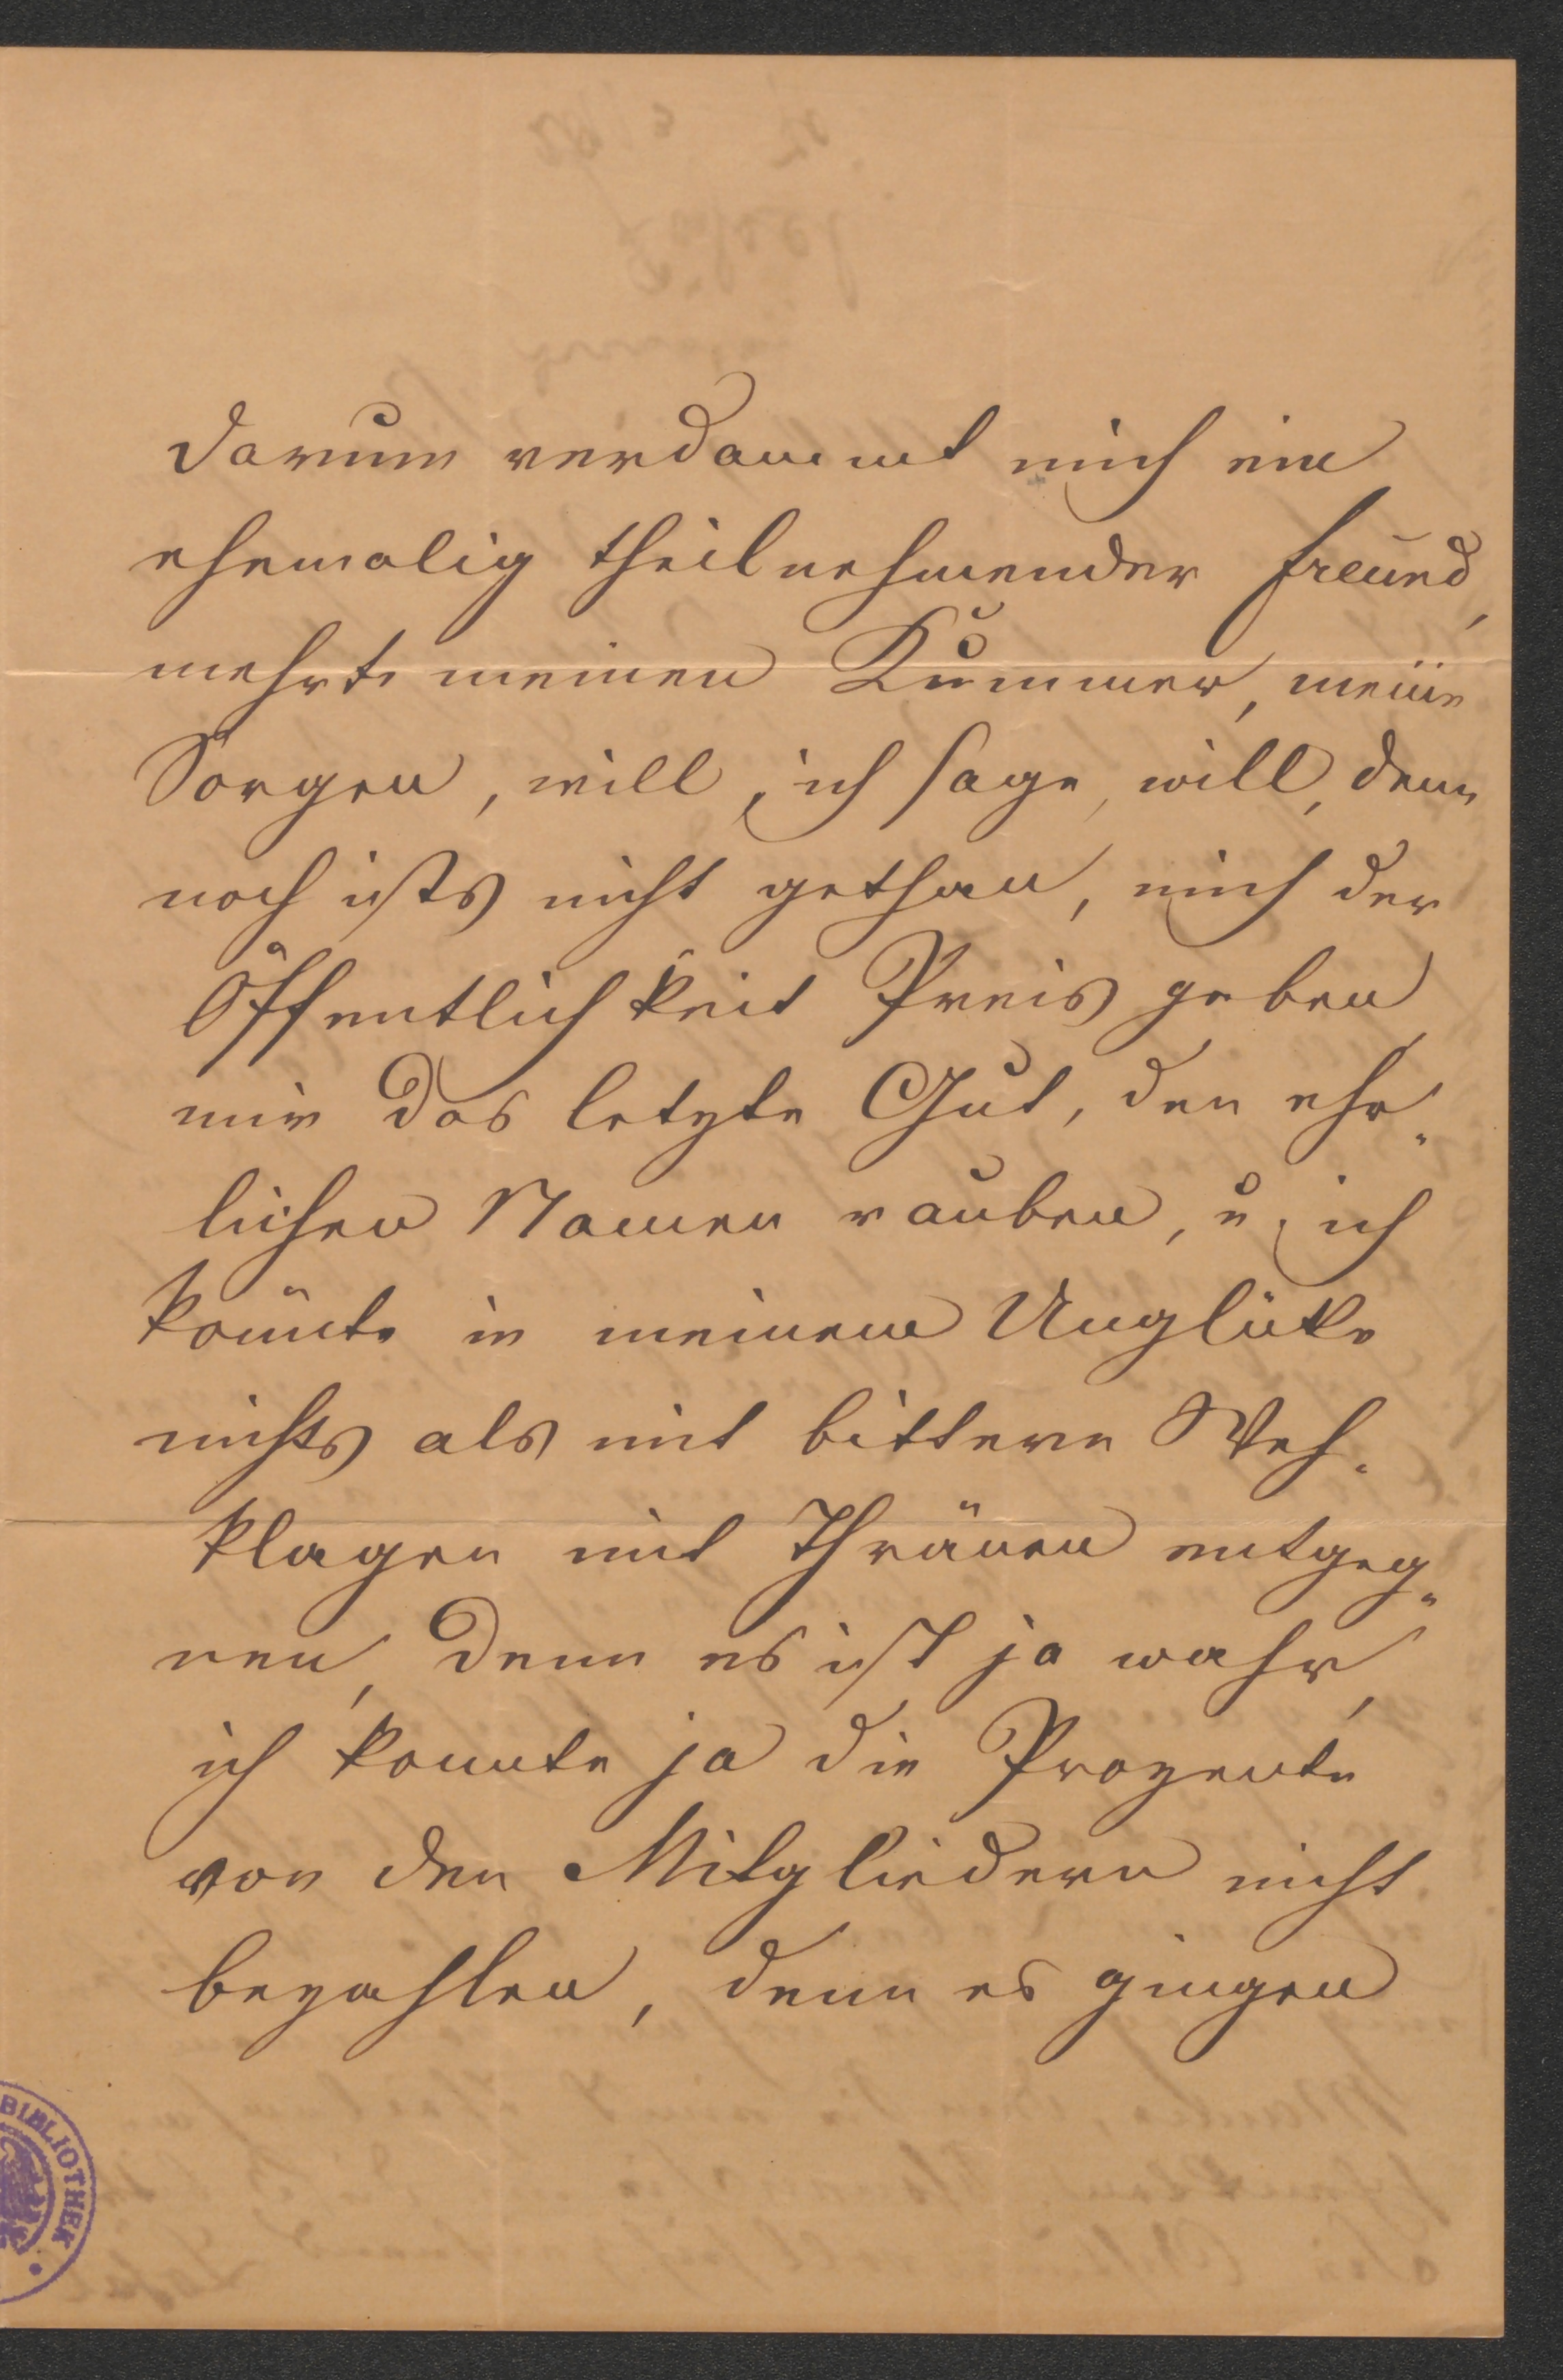 darum verdammt mich ein
ehemalig theilnehmender Freund,
mehrt meinen Kummer, meine
Sorgen, will, ich sage, will, denn
noch ists nicht gethan, mich der
Öffentlichkeit Preis geben,
mir das letzte Gut, den ehr„
lichen Namen rauben, u. ich
könnte in meinem Unglücke
nichts als mit bittere Weh„
klagen mit Thränen entgeg„
nen, denn es ist ja wahr,
ich konnte ja die Prozente
von den Mitgliedern nicht
bezahlen, denn es gingen
BIBLIOTHEK